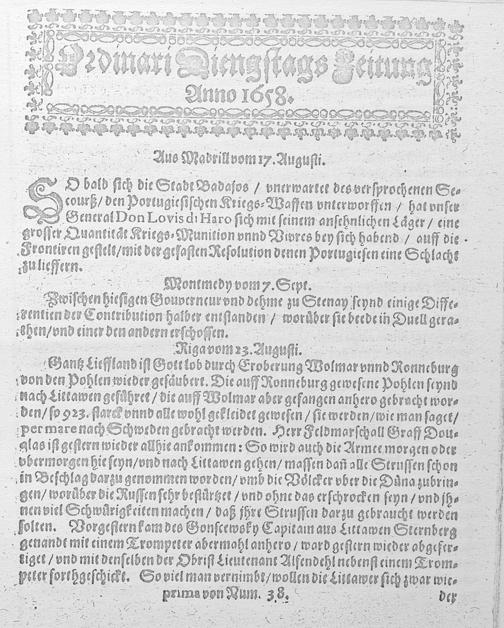 Ordinari Diengstags Zeitung
Anno 1658.
Aus Madrill vom 17. Augusti.
SO bald sich die Stadt Badajos / vnerwartet des versprochenen Se-
courß / den Portugiesischen Kriegs-Waffen vnterworffen / hat vnser
General Don Lovis di Haro sich mit seinem ansehnlichen Läger / eine
grosser Quantität Kriegs-Munition vnnd Vivres bey sich habend / auff die
Frontiren gestelt / mit der gefasten Resolution denen Portugiesen eine Schlacht
zu lieffern.
Montmedy vom 7. Sept.
Zwischen hiesigen Gouverneur vnd dehme zu Stenay seynd einige Diffe-
rentien der Contribution halber entstanden / worüber sie beede in Duell gera-
then / vnd einer den andern erschossen.
Riga vom 23. Augusti.
Gantz Lieffland ist Gott lob durch Eroberung Wolmar vnnd Ronneburg
von den Pohlen wieder gesäubert. Die auff Ronneburg gewesene Pohlen seynd
nach Littawen geführet / die auff Wolmar aber gefangen anhero gebracht wor-
den / so 923. starck vnnd alle wohl gekleidet gewesen / sie werden / wie man saget /
per mare nach Schweden gebracht werden. Herr Feldmarschall Graff Dou-
glas ist gestern wieder allhie ankommen: So wird auch die Armee morgen oder
vbermorgen hie seyn / vnd nach Littawen gehen / massen dañ alle Strussen schon
in Beschlag darzu genommen worden / vmb die Völcker vber die Düna zubrin-
gen / worüber die Russen sehr bestürtzet / vnd ohne das erschrocken seyn / vnd ih-
nen viel Schwürigkeiten machen / daß ihre Strussen darzu gebraucht werden
solten. Vorgestern kam des Gonsewsky Capitain aus Littawen Sternberg
genandt mit einem Trompeter abermahl anhero / ward gestern wieder abgefer-
tiget / vnd mit denselben der Obrist Lieutenant Alfendehl nebenst einem Trom-
peter forthgeschickt. So viel man vernimbt / wollen die Littawer sich zwar wie-
prima von Num. 38. der